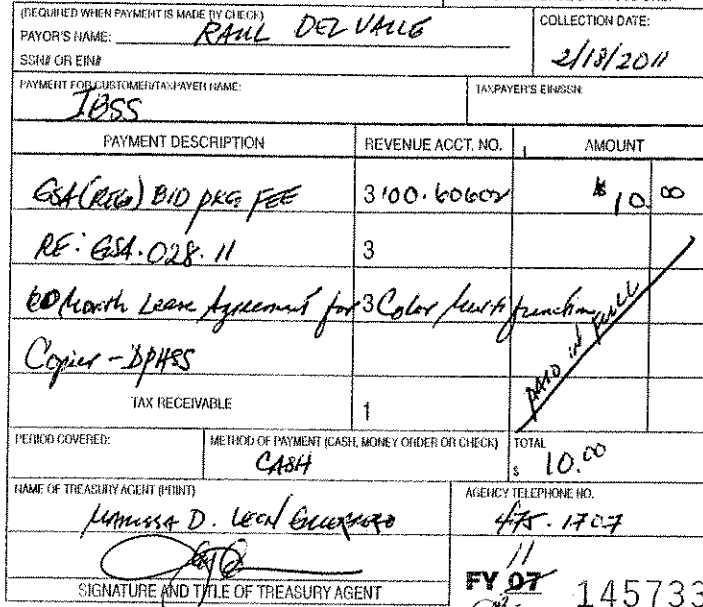 (REQUIRED WHEN PAYMENT IS MADE BY CHECK)
PAYOR'S NAME: RAUL DEL VALLE
COLLECTION DATE:
SSN# OR EIN#
2/18/2011
PAYMENT FOR CUSTOMER/TAXPAYER NAME:
IBSS
TAXPAYER'S EIN/SSN:
PAYMENT DESCRIPTION REVENUE ACCT. NO. AMOUNT
GSA (REG) BID PKG FEE 3100.60602 $ 10. 00
RE: GSA.028.11 3
60 Month Lease Agreement for 3 Color Multi function
Copier - DPHSS
PAID IN FULL
TAX RECEIVABLE 1
PERIOD COVERED: METHOD OF PAYMENT (CASH, MONEY ORDER OR CHECK) TOTAL
CASH $ 10.00
NAME OF TREASURY AGENT (PRINT) AGENCY TELEPHONE NO.
MARISSA D. LEON GUERRERO 475.1707
11
SIGNATURE AND TITLE OF TREASURY AGENT FY 07 145733